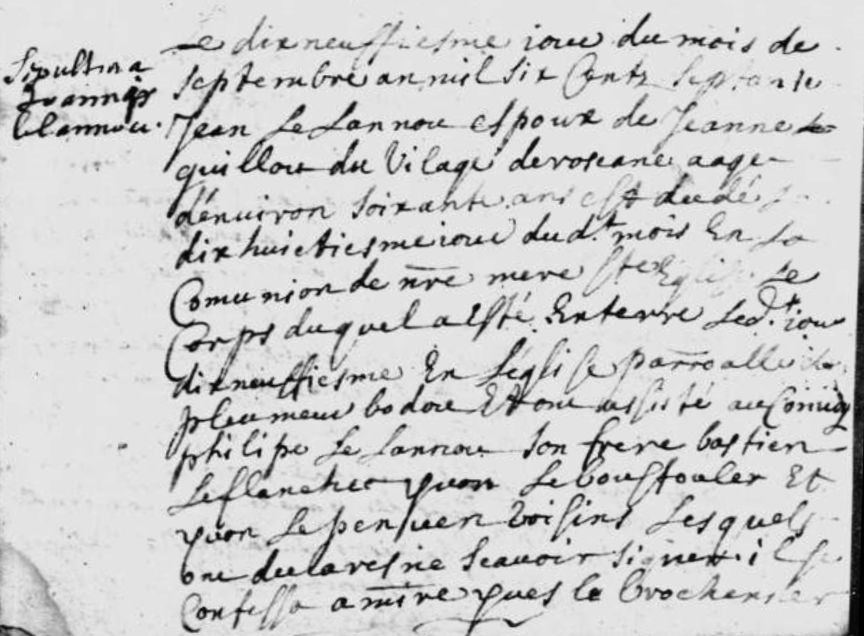 Sepultura
Joannis
le lannou.
Le dixneuffiesme iour du mois de
septembre an mil six Centz septante
Jean Le Lannou espoux de Jeanne Le
quillou du Vilage de aage
d'enuiron soixante ans est decedé
dix huictiesme iour du d.t mois En La
Comunion de nr̄e mere ste Eglise Le
Corps duquel a Esté Enterré Led.t iour
dixneuffiesme En L'église parroalle de
pleumeur bodou Et ont assisté au Conuoy
philipe Le Lannou son frere bastien
Yuon Le boustouler Et
yuon Le penuen Voisins Lesquels
ont declaré ne scauoir signer. il se
Confessa a yues le